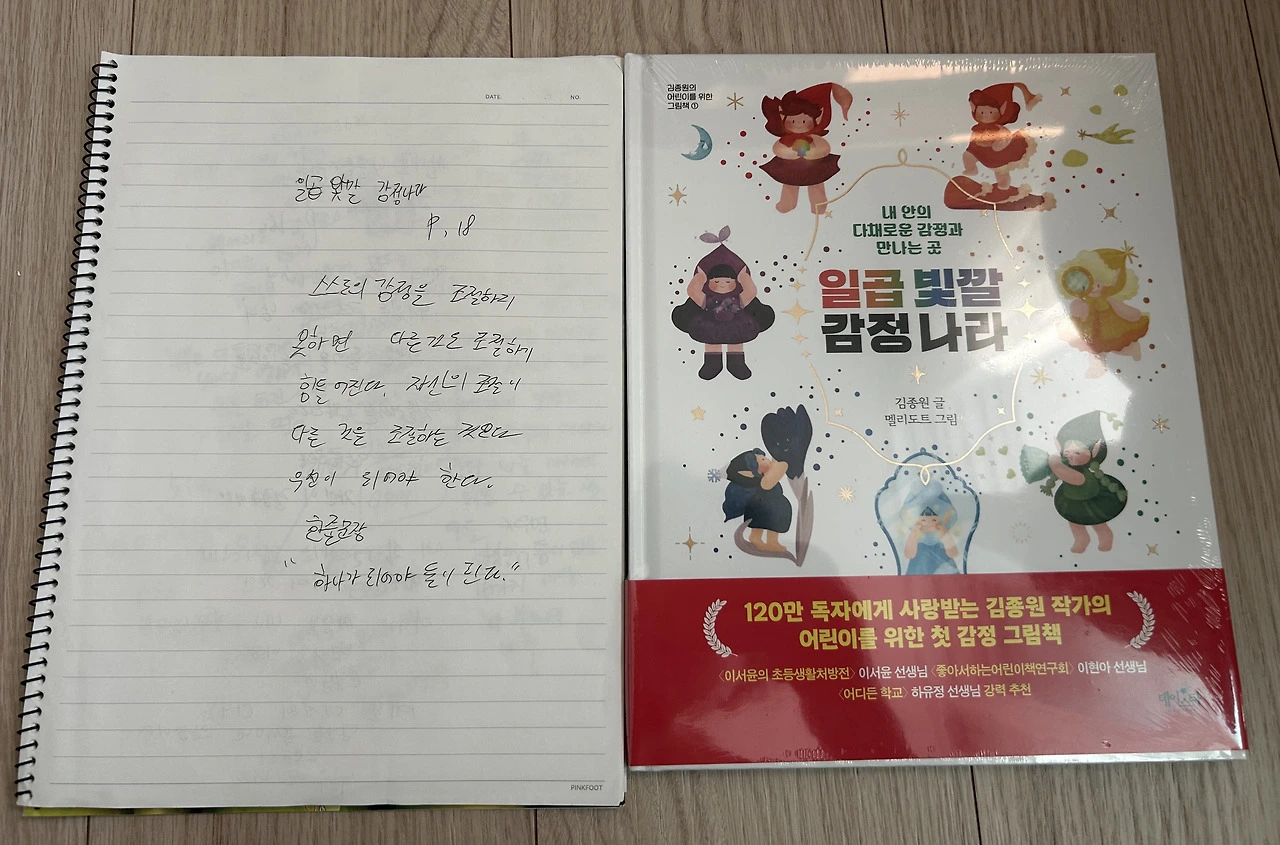 DATE. NO.
일곱 빛깔 감정나라
P. 18
스스로의 감정을 조절하지
못하면 다른 것도 조절하기
힘들어진다. 자신의 조절이
다른 것을 조절하는 것보다
우선이 되어야 한다.
한줄문장
"하나가 되어야 둘이 된다."
PINKFOOT
김종원의
어린이를 위한
그림책 ①
내 안의
다채로운 감정과
만나는 곳
일곱 빛깔
감정 나라
김종원 글
멜리도트 그림
120만 독자에게 사랑받는 김종원 작가의
어린이를 위한 첫 감정 그림책
〈이서윤의 초등생활처방전〉 이서윤 선생님 〈좋아서하는어린이책연구회〉 이현아 선생님
〈어디든 학교〉 하유정 선생님 강력 추천
데이스타